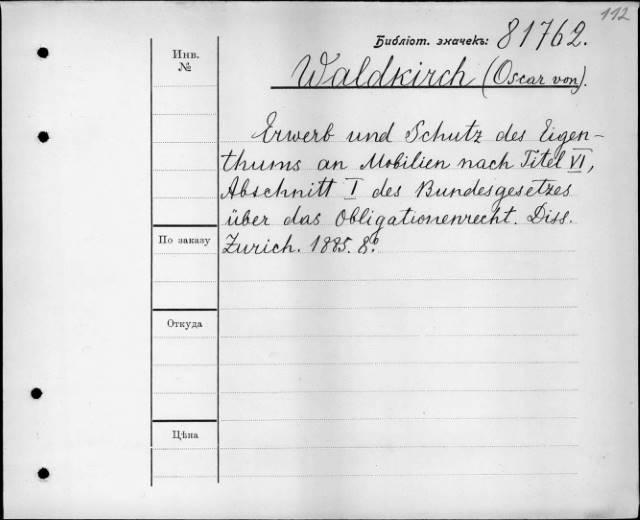 112
Библіот. значекъ: 81762.
Инв.
№
Waldkirch (Oscar von).
Erwerb und Schutz des Eigen-
thums an Mobilien nach Titel VI,
Abschnitt I des Bundesgesetzes
über das Obligationenrecht. Diss.
Zurich. 1885. 8º.
По заказу
Откуда
Цѣна